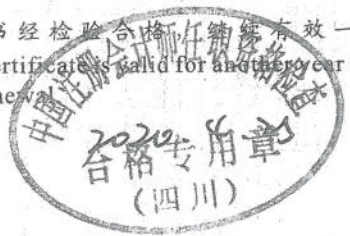 书经检验合格，继续有效一
ertificate is valid for another year
newal
中国注册会计师任职资格检查
2020.4.25
合格专用章
（四川）